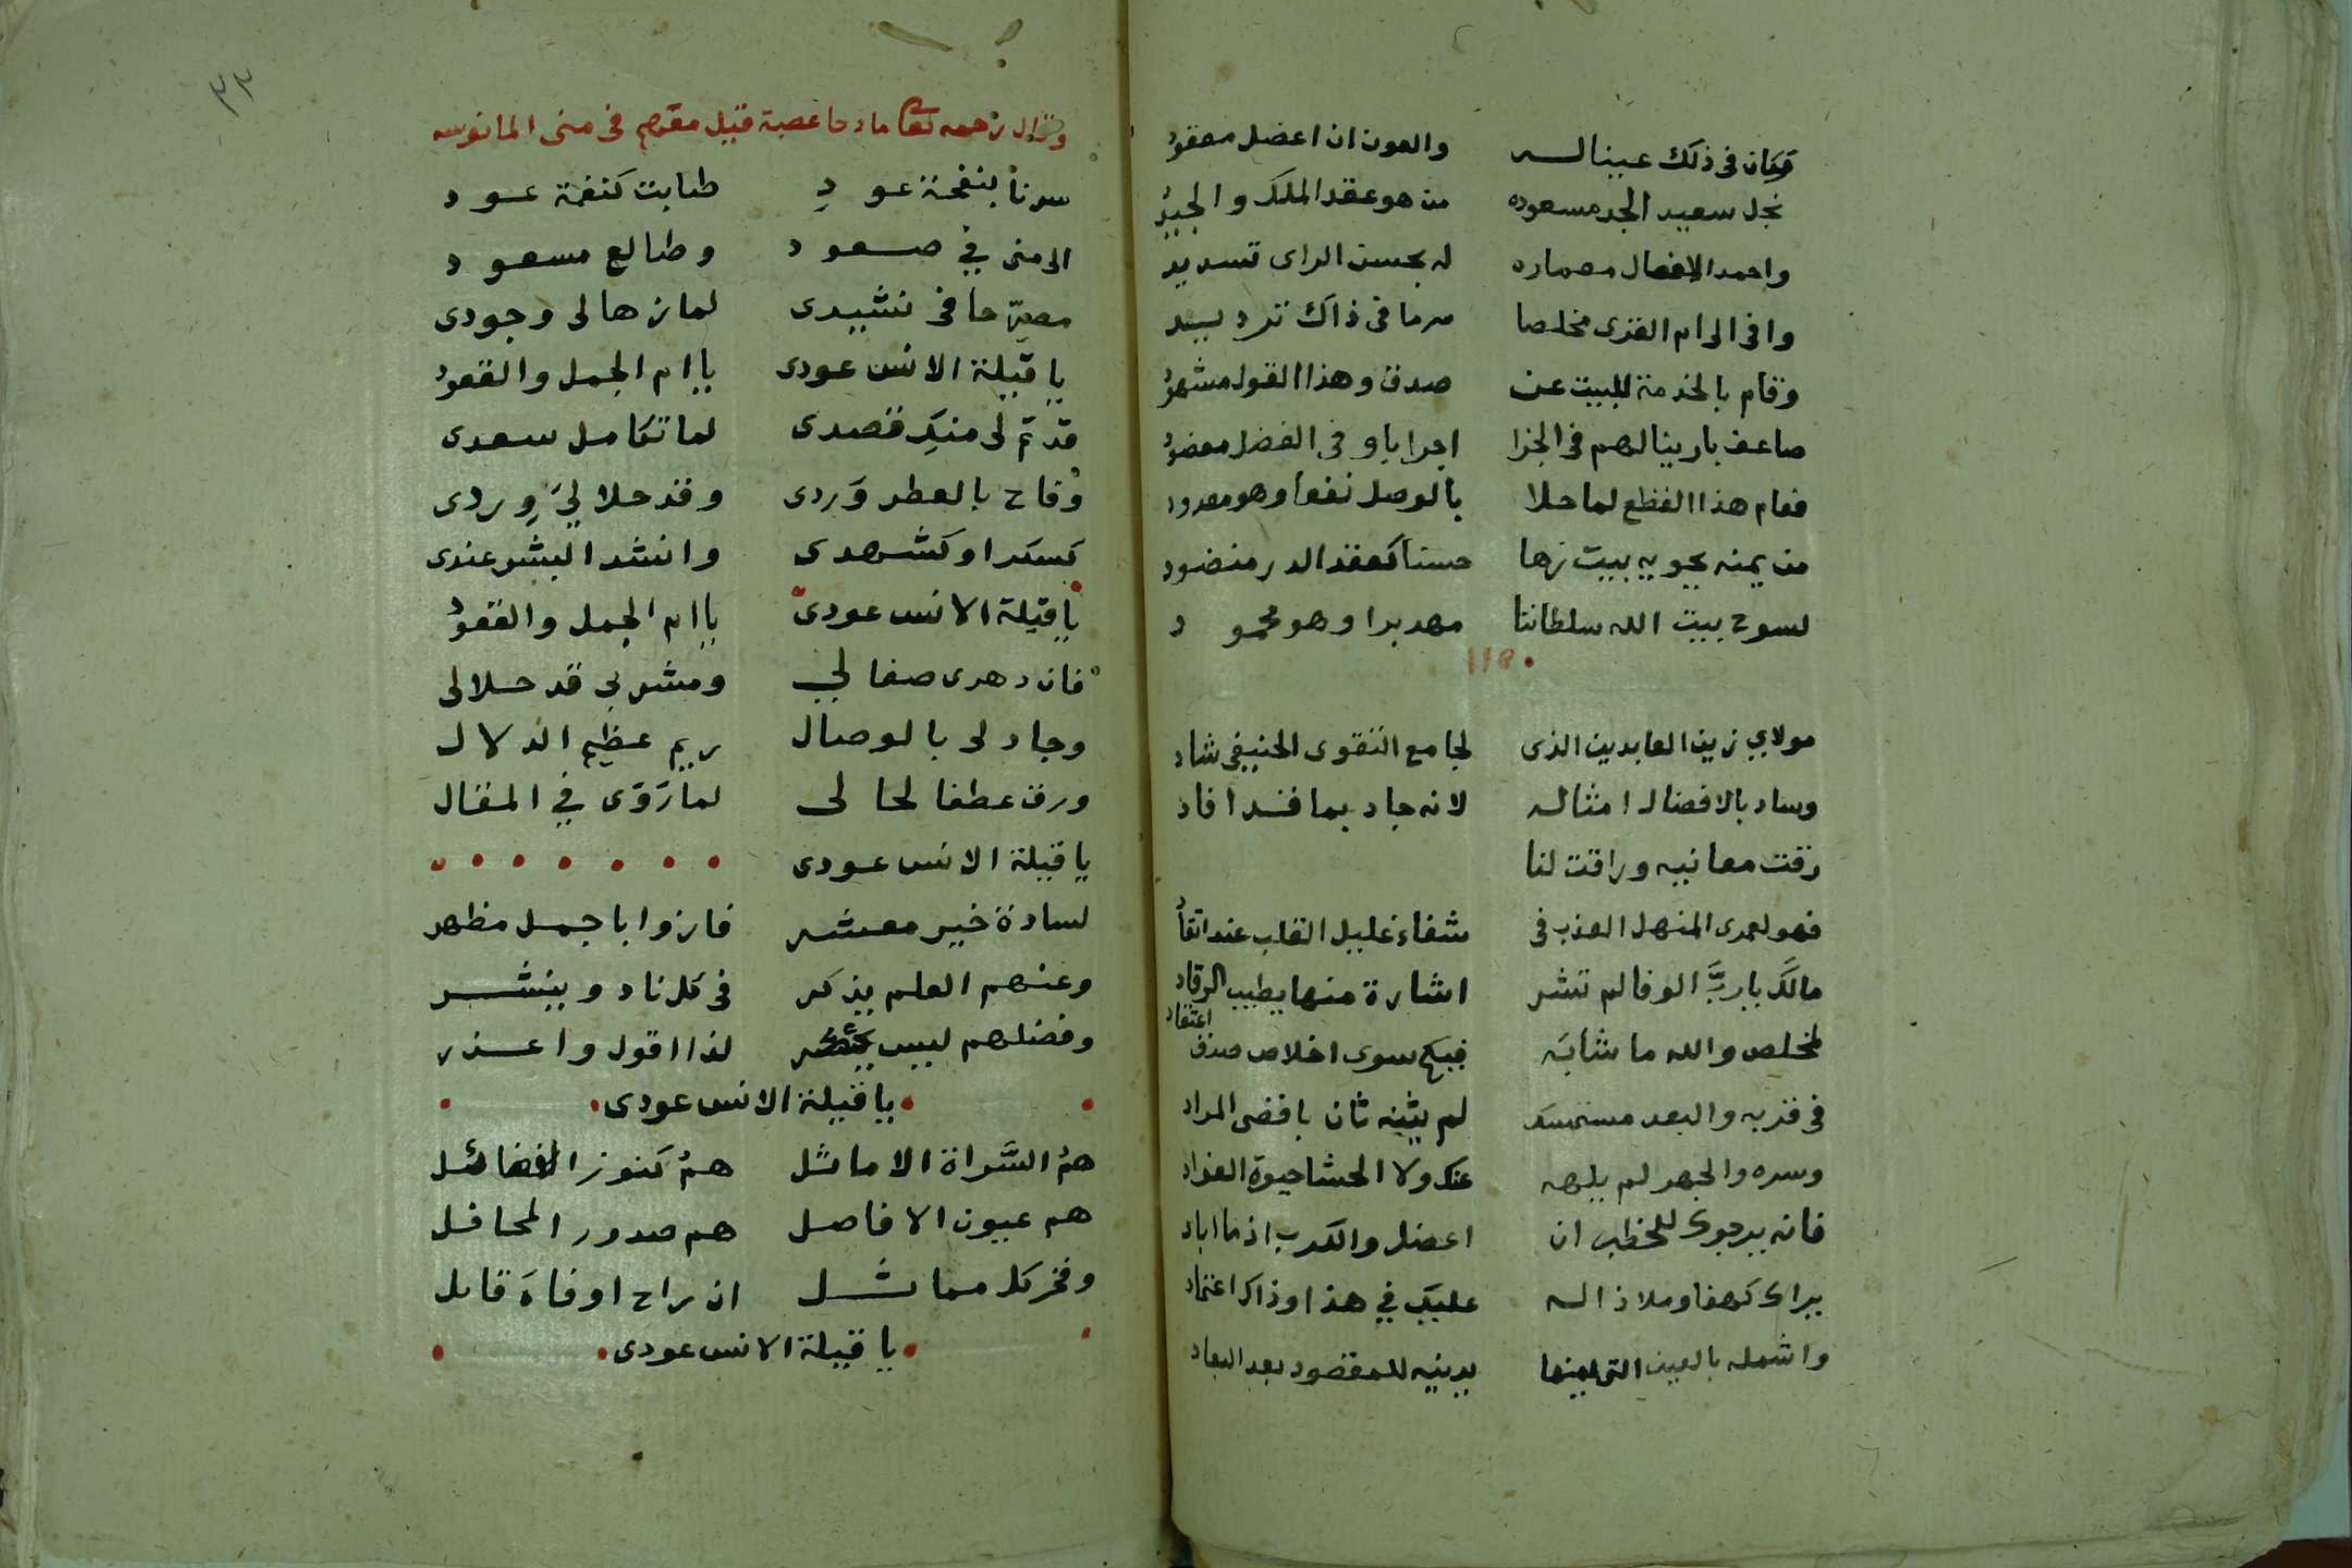 فكان في ذلك عينا له والعون ان اعضل معقود
نجل سعيد الجد مسعوده من هو عقد الملك والجيد
واحمد الافعال معماره له بحسن الراى تسديد
وافى الى ام القرى مخلصا مرما فى ذاك ترديد
وقام بالخدمة للبيت عن صدق وهذا القول مشهود
ضاعف يا ربنا لهم فى الجزا اجرا باوفى الفضل معضود
فعام هذا القطع لما حلا بالوصل نفعا وهو معدود
من يمنه يحويه بيت زها حسنا كعقد الدر منضود
لسوح بيت الله سلطاننا مهدیرا وهو محمود
١١٥٠
مولاي زين العابدين الذى لجامع التقوى الحنيفى شاد
وساد بالافضال امثاله لانه جاد بما قد افاد
رقت معانيه وراقت لنا
فهو لعمرى المنهل العذب فى شفاء غليل القلب عند اتقاد
مالك يا رب الوفا لم تشر اشارة منها يطيب الرقاد
لمخلص والله ما شابه فيكم سوى اخلاص صدق اعتقاد
فى قربه والبعد مستمسك لم يثنه ثان باقصى المراد
وسره والجهر لم يلهه عنك ولا الحشا حيوة الفواد
فانه يرجوك للخطب ان اعضل والكرب اذا ما اباد
يراك كهفا وملاذا له عليك في هذا وذاك اعتماد
واشمله بالعين التى يمنها يدنيه للمقصود بعد البعاد
٣٣
وقال رحمه تعالى مادحا عصبة قبيل مقدم فى منى المانوسه
سرنا بنفحة عود طابت كنغمة عود
الى منى في صعود وطالع مسعود
مصرحا فى نشيدى لما زها لى وجودى
يا قبلة الانس عودى يا ام الجمل والقعود
قد تم لى منك قصدى لما تكامل سعدى
وفاح بالعطر وردى وقد حلا لي وردى
كسكر او كشهدى وانشد البشر عندى
يا قبلة الانس عودى يا ام الجمل والقعود
فان دهرى صفا لي ومشربى قد حلا لى
وجاد لى بالوصال ريم عظيم الدلال
ورق عطفا لحالى لما تروى في المقال
يا قبلة الانس عودى
لسادة خير معشر فازوا باجمل مظهر
وعنهم العلم يذكر فى كل ناد وينشر
وفضلهم ليس ينكر لذا اقول واعذر
يا قبلة الانس عودى
هم السراة الاماثل هم كنوز الفضائل
هم عيون الافاضل هم صدور المحافل
وفخر كل مماثل ان راح او فاه قايل
يا قبلة الانس عودى